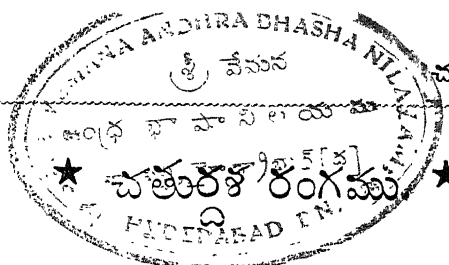 VEMANA ANDHRA BHASHA NILAYAM,
శ్రీ వేమన
ఆంధ్ర భాషా నిలయము
★ చతుర్దశ రంగము. ★
HYDERABAD DN.